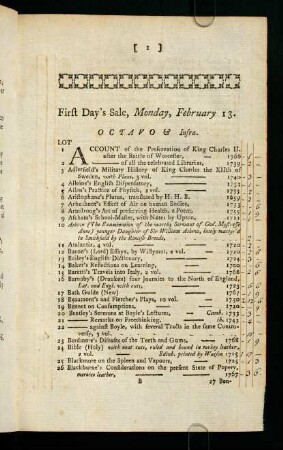 [ 1 ]
First Day's Sale, Monday, February 13.
OCTAVO & Infra.
LOT
1 ACCOUNT of the Preservation of King Charles II.
after the Battle of Worcester, 1766
2 of all the celebrated Libraries, 1739
3 Adlerfeld's Military History of King Charles the XIIth of
Sweden, with Plates, 3 vol. 1740
4 Alleine's English Dispensatory, 1733
5 Allen's Practice of Physick, 2 vol. 1733
6 Aristophanes's Plutus, translated by H. H. B. 1659
7 Arbuthnot's Effect of Air on human Bodies, 1733
8 Armstrong's Art of preserving Health, a Poem, 1745
9 Ascham's School-Master, with Notes by Upton, 1743
11 Atalantis, 4 vol. 1720
12 Bacon's (Lord) Essays, by Willymot, 2 vol. 1720
13 Bailey's English Dictionary, 1737
14 Baker's Reflections on Learning, 1738
15 Baretti's Travels into Italy, 2 vol. 1768
16 Barnaby's (Drunken) four Journies to the North of England,
Lat. and Engl. with cuts, 1723
17 Bath Guide (New) 1767
18 Beaumont's and Fletcher's Plays, 10 vol. 1750
19 Bennet on Consumptions, 1720
20 Bentley's Sermons at Boyle's Lectures, Camb. 1735
21 Remarks on Freethinking, 1743
22 against Boyle, with several Tracts in the same Controversy,
23 Berdmore's Diseases of the Teeth and Gums, 1768
24 Bible (Holy) with neat cuts, ruled and bound in turkey leather,
2 vol. Edinb. printed by Watson 1715
25 Blackmore on the Spleen and Vapours, 1725
26 Blackburne's Considerations on the present State of Popery,
morocco leather, 1767
B 27 Bon-